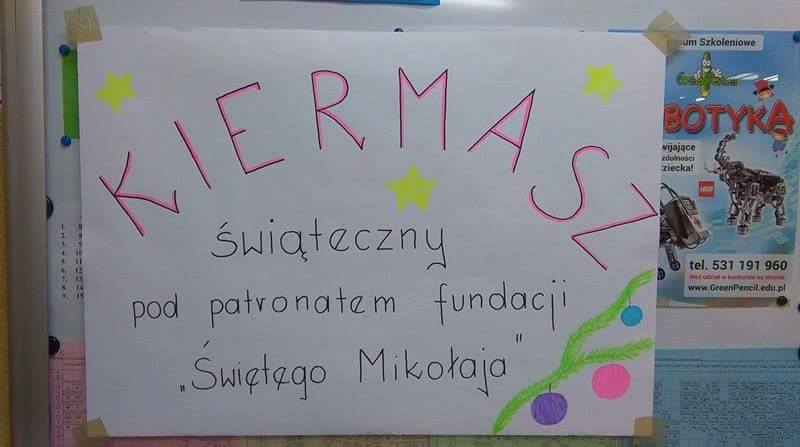 KIERMASZ
świąteczny
pod patronatem fundacji
„Świętęgo Mikołaja”
um Szkoleniowe
GreenPencil
BOTYKA
wijające
zdolności
dziecka!
LEGO
tel. 531 191 960
Weź udział w konkursie na stronie:
www.GreenPencil.edu.pl
1.
2.
3.
4.
5.
6.
7.
8.
9.